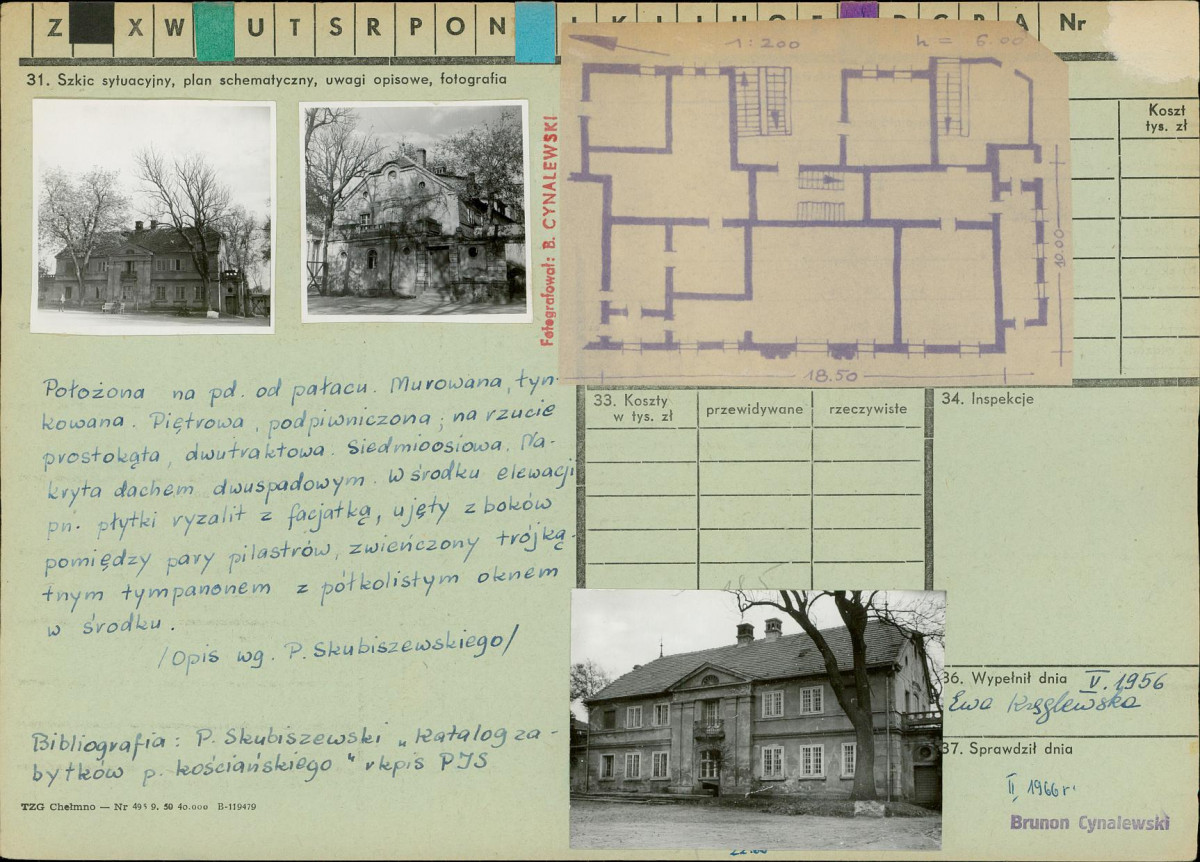 Z X W U T S R P O N K I H G F D C B A Nr
31. Szkic sytuacyjny, plan schematyczny, uwagi opisowe, fotografia
Fotografował: B. CYNALEWSKI
1:200 h = 6.00
10.00
18.50
Koszt
tys. zł
Położona na pd. od pałacu. Murowana, tyn-
kowana. Piętrowa, podpiwniczona; na rzucie
prostokąta, dwutraktowa. Siedmioosiowa. Na-
kryta dachem dwuspadowym. W środku elewacji
pn. płytki ryzalit z facjatką, ujęty z boków
pomiędzy pary pilastrów, zwieńczony trójką-
tnym tympanonem z półkolistym oknem
w środku.
/Opis wg. P. Skubiszewskiego/
Bibliografia: P. Skubiszewski „Katalog za-
bytków p. kościańskiego" rkpis PIS
TZG Chełmno — Nr 495 9. 50 40.000 B-119479
33. Koszty
w tys. zł
przewidywane
rzeczywiste
34. Inspekcje
36. Wypełnił dnia V. 1956
Ewa Kręglewska
37. Sprawdził dnia
II. 1966 r.
Brunon Cynalewski